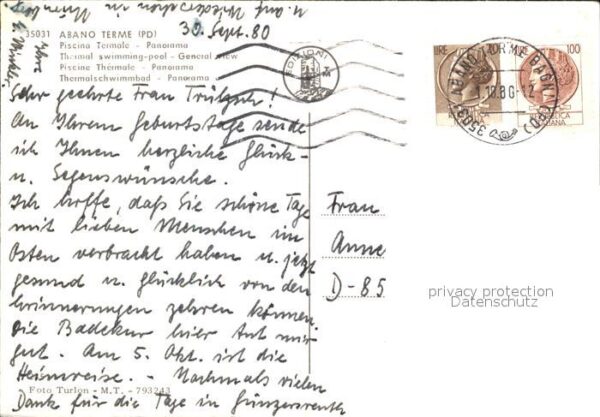 u. auf Wiederschön in Nürnberg
Ihre
30. Sept. 80
35031 ABANO TERME (PD)
Piscina Termale - Panorama
Thermal swimming-pool - General view
Piscine Thérmale - Panorama
Thermalschwimmbad - Panorama
LIRE
LIRE 100
REPUBBLICA ITALIANA
35031 ABANO TERME BAGNI (PD)
Sehr geehrte Frau
An Ihrem Geburtstage sende
ich Ihnen herzliche Glück-
u. Segenswünsche.
Ich hoffe, daß Sie schöne Tage
mit lieben Menschen im
Osten verbracht haben u. jetzt
gesund u. glücklich von den
Erinnerungen zehren können.
Die Badekur hier tut mir
gut. Am 5. Okt. ist die
Heimreise. - Nochmals vielen
Dank für die Tage in Günzersreuth
Frau
Anne
D-85
privacy protection
Datenschutz
Foto Turlon - M.T. - 793243